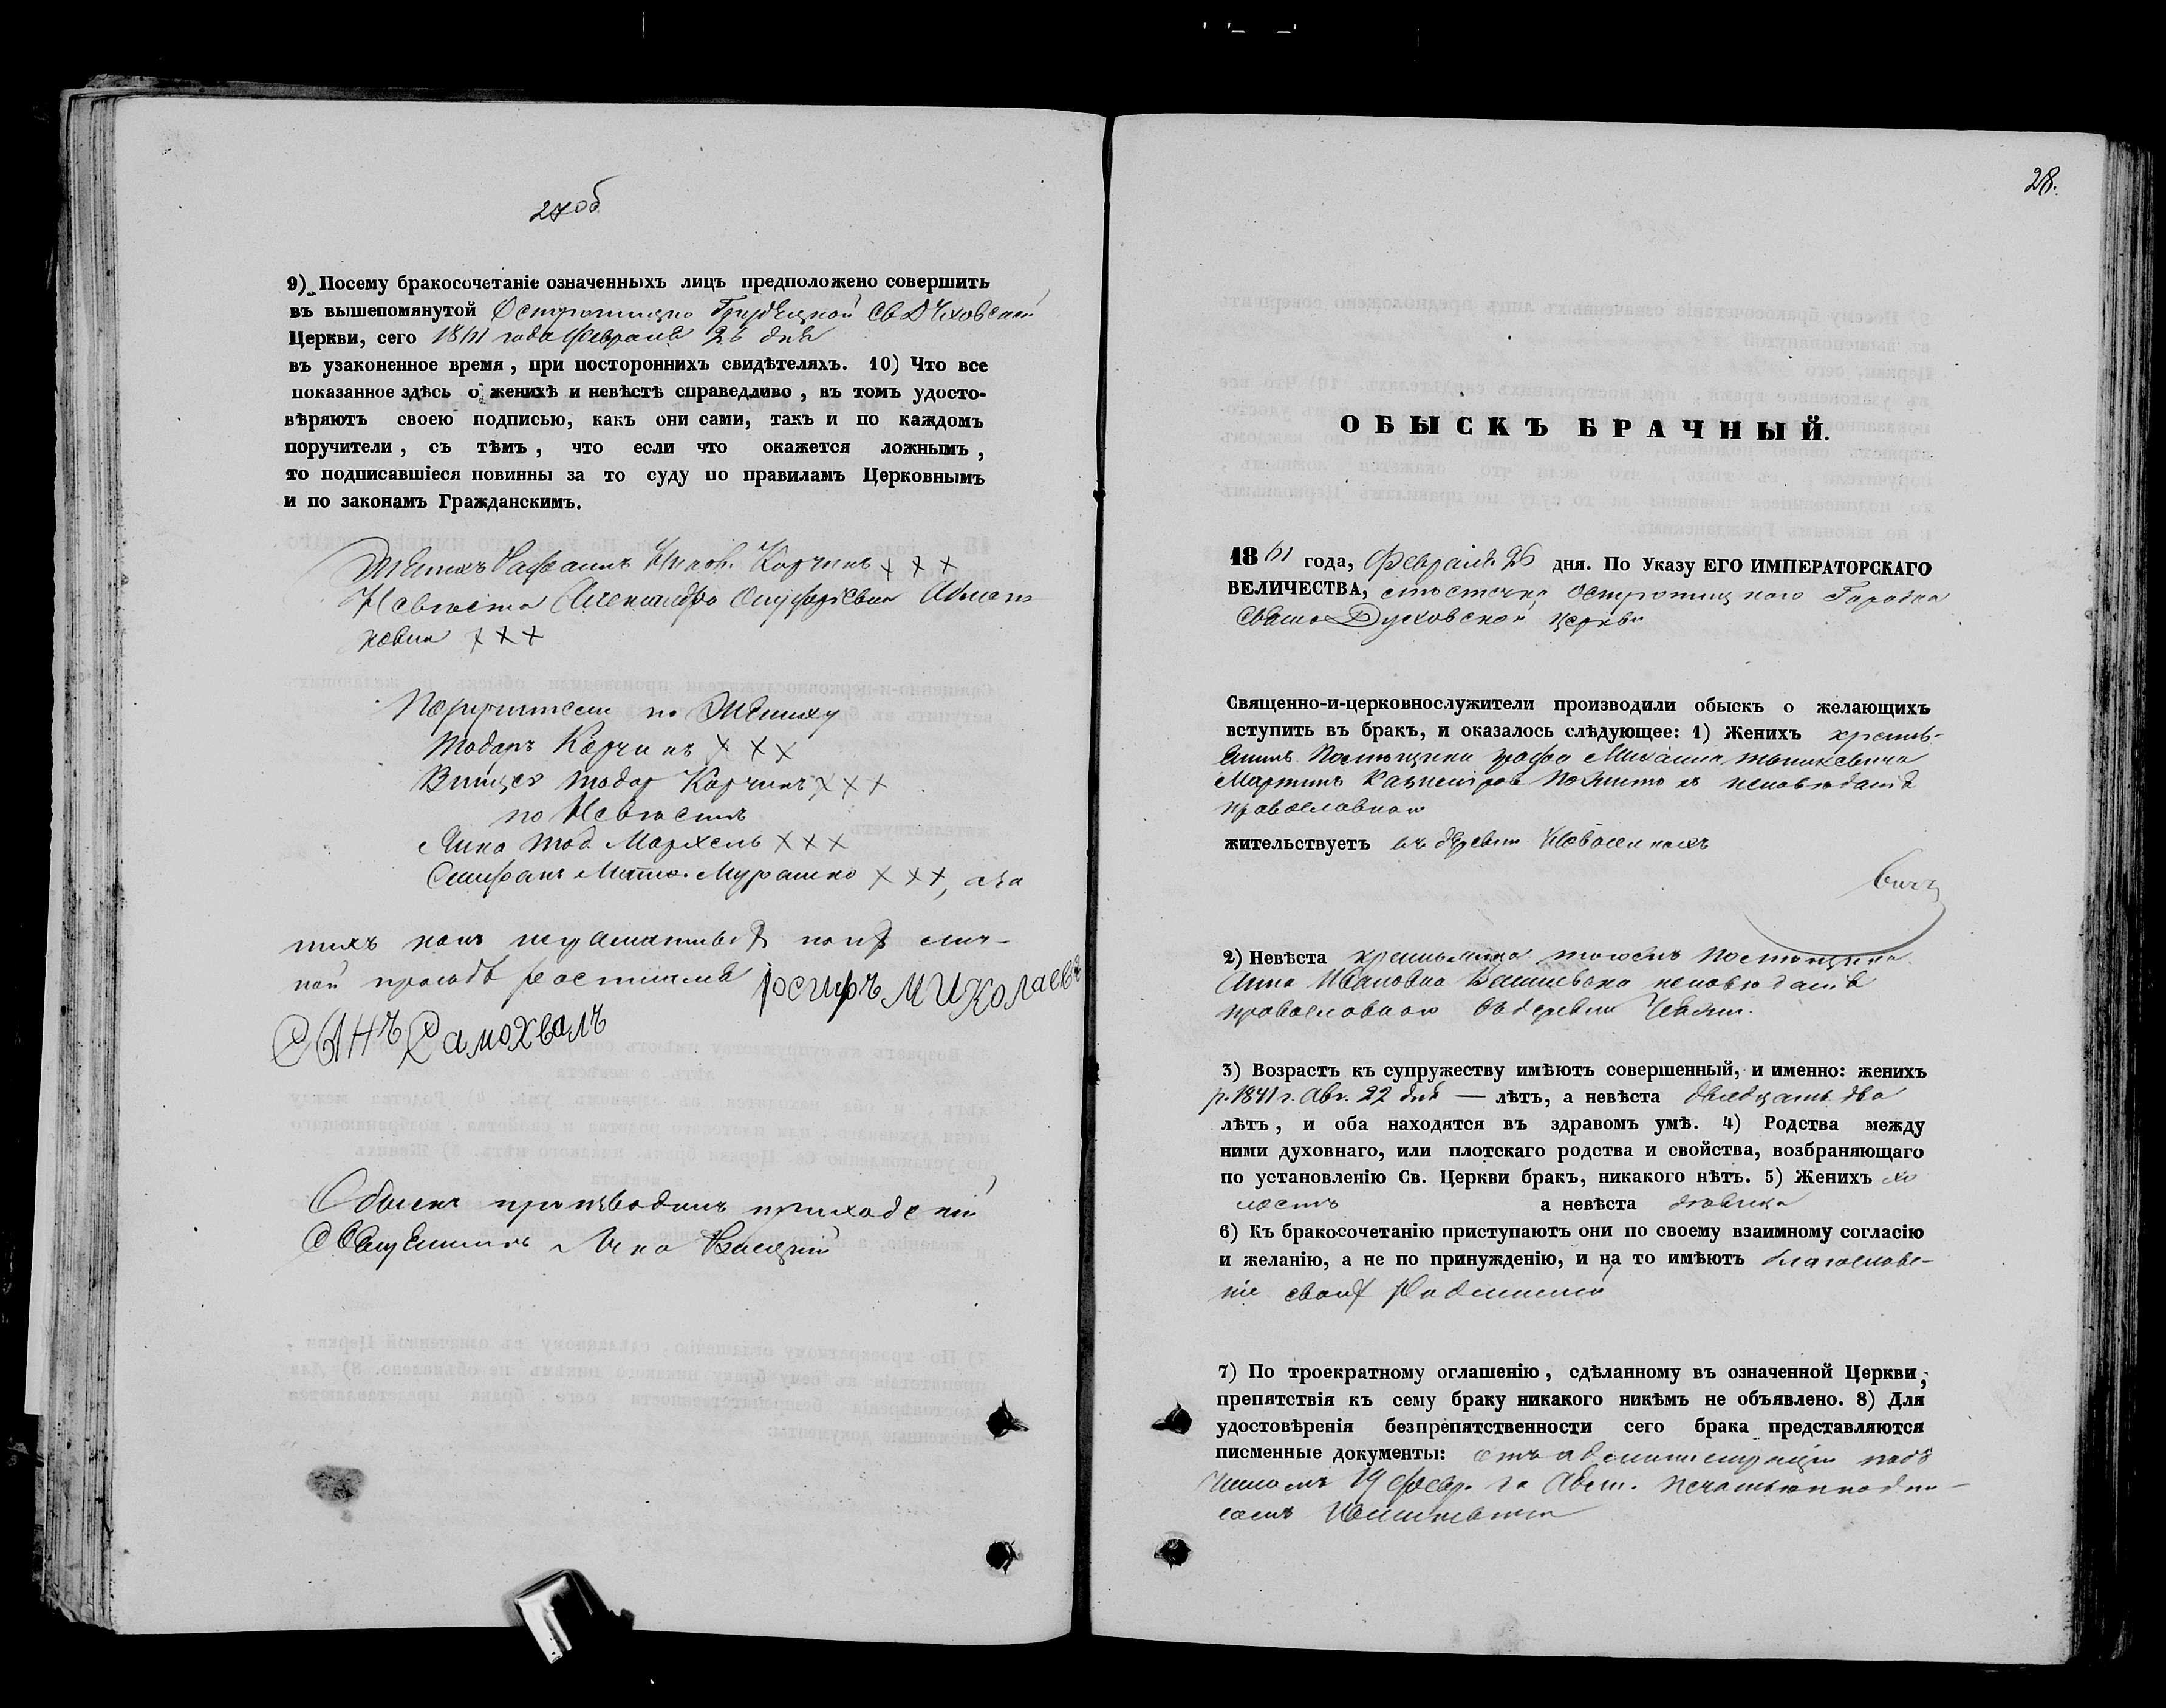 27об
9) Посему бракосочетаніе означенныхъ лицъ предположено совершить
въ вышепомянутой Остро­шицко Городецкой Св Духовской
Церкви, сего 1861 года Февраля 26 дня
въ узаконенное время, при постороннихъ свидѣтеляхъ. 10) Что все
показанное здѣсь о женихѣ и невѣстѣ справедливо, въ томъ удосто-
вѣряютъ своею подписью, какъ они сами, такъ и по каждомъ
поручители, съ тѣмъ, что если что окажется ложнымъ,
то подписавшіеся повинны за то суду по правиламъ Церковнымъ
и по законамъ Гражданскимъ.
Женихъ Корчикъ + + +
Невѣста Александра
+ + +
Поручители по Жениху
Тодоръ Корчикъ + + +
Тодор Корчикъ + + +
по Невѣстѣ
Тод. + + +
Стефанъ Мурашко + + +, а за
тихъ какъ неграматныхъ по ихъ лич-
ной прозьбѣ росписался Іосифъ Миколаевъ
Сынъ Самохвалъ
Обыскъ производилъ приходскій
Священникъ
28.
ОБЫСКЪ БРАЧНЫЙ.
1861 года, Февраля 26 дня. По Указу ЕГО ИМПЕРАТОРСКАГО
ВЕЛИЧЕСТВА, мѣстечка Острошицкаго Городка
Свято Духовской церкви
Священно-и-церковнослужители производили обыскъ о желающихъ
вступить въ бракъ, и оказалось слѣдующее: 1) Женихъ крестья-
нинъ графа Михаила Тышкевича
Мартинъ исповѣданія
православнаго
жительствуетъ въ деревни
2) Невѣста крестьянка
Анна Ивановна исповѣданія
православнаго въ деревни
3) Возрастъ къ супружеству имѣютъ совершенный, и именно: женихъ
р. 1841 г. Авг. 22 дня — лѣтъ, а невѣста двадцать два
лѣтъ, и оба находятся въ здравомъ умѣ. 4) Родства между
ними духовнаго, или плотскаго родства и свойства, возбраняющаго
по установленію Св. Церкви бракъ, никакого нѣтъ. 5) Женихъ хо
лостъ а невѣста дѣвица
6) Къ бракосочетанію приступаютъ они по своему взаимному согласію
и желанію, а не по принужденію, и на то имѣютъ благослове-
ніе своихъ Родителей
7) По троекратному оглашенію, сдѣланному въ означенной Церкви,
препятствія къ сему браку никакого никѣмъ не объявлено. 8) Для
удостовѣренія безпрепятственности сего брака представляются
писменные документы: отъ администраціи подъ
числомъ 19 февр. за печатью и подпи-
сомъ